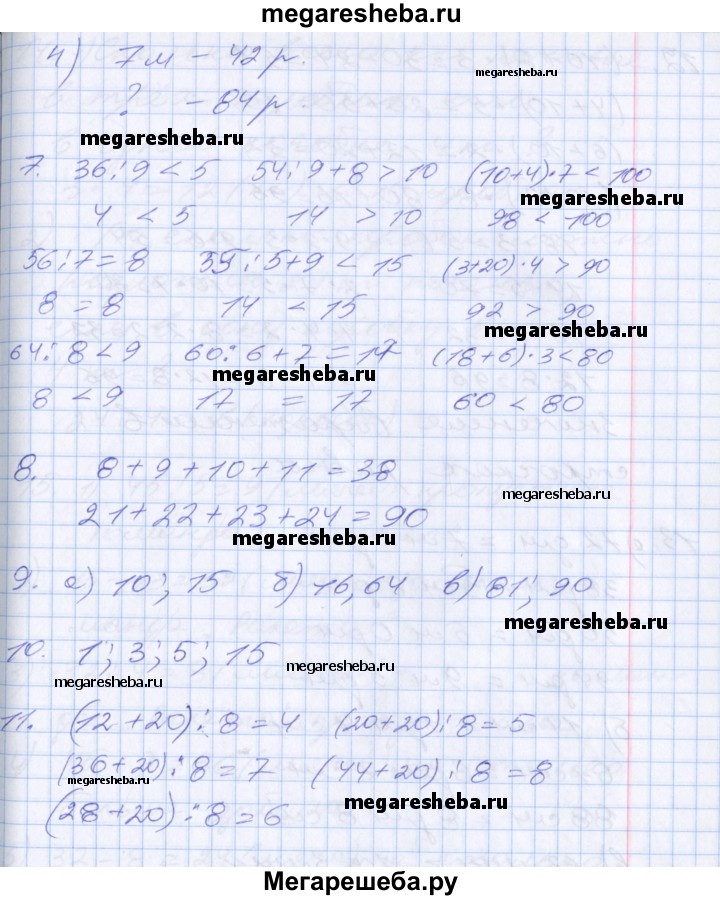 megaresheba.ru
4) 7м - 42р.
megaresheba.ru
? - 84р
megaresheba.ru
7. 36:9<5 54:9+8>10 (10+4)·7<100
megaresheba.ru
4 < 5 14 > 10 98 < 100
56:7=8 35:5+9<15 (3+20)·4>90
8 = 8 14 < 15 92 > 90
megaresheba.ru
64:8<9 60:6+7=17 (18+6)·3<80
megaresheba.ru
8 < 9 17 = 17 60 < 80
8. 8+9+10+11=38
megaresheba.ru
21+22+23+24=90
megaresheba.ru
9. а) 10; 15 б) 16, 64 в) 81; 90
megaresheba.ru
10. 1; 3; 5; 15
megaresheba.ru
megaresheba.ru
11. (12+20):8=4 (20+20):8=5
(36+20):8=7 (44+20):8=8
megaresheba.ru
megaresheba.ru
(28+20):8=6
Мегарешеба.ру